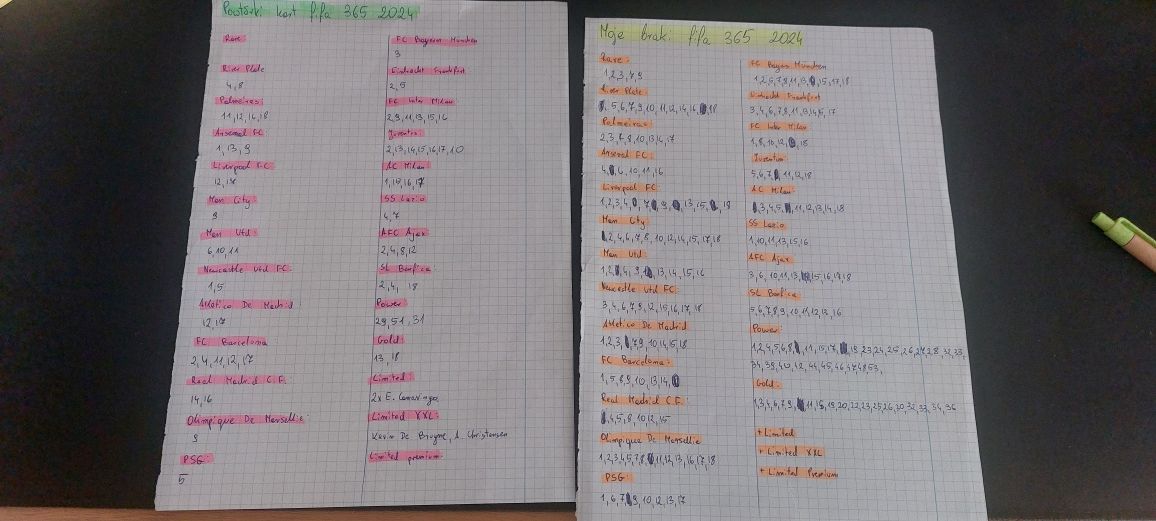 Powtórki kart fifa 365 2024
Rare
River Plate
4, 8
Palmeiras
11, 12, 16, 18
Arsenal FC:
1, 13, 9
Liverpool FC
12, 17
Man City:
9
Man Utd:
6, 10, 11
Newcastle Utd FC:
1, 5
Atletico De Madrid
12, 17
FC Barcelona
2, 4, 11, 12, 17
Real Madrid C.F.
14, 16
Olimpique De Marsellie:
9
PSG:
5
FC Bayern München
3
Eintracht Frankfurt
2, 5
FC Inter Milan
2, 9, 11, 13, 15, 16
Juventus
2, 13, 14, 15, 16, 17, 10
AC Milan
1, 15, 16, 17
SS Lazio
4, 7
AFC Ajax
2, 4, 8, 12
SL Benfica:
2, 4, 18
Power
29, 51, 31
Gold:
13, 18
Limited:
2x E. Camavinga
Limited XXL:
Kevin De Bruyne, A. Christensen
Limited premium:
Moje braki fifa 365 2024
Rare:
1, 2, 3, 7, 9
River Plate:
5, 6, 7, 9, 10, 11, 12, 14, 16, 18
Palmeiras:
2, 3, 7, 8, 10, 13, 14, 17
Arsenal FC:
4, 6, 10, 11, 16
Liverpool FC:
1, 2, 3, 4, 7, 9, 13, 15, 18
Man City:
2, 4, 6, 7, 8, 10, 12, 14, 15, 17, 18
Man Utd:
1, 2, 4, 9, 13, 14, 15, 16
Newcastle Utd FC:
3, 4, 6, 7, 9, 12, 15, 16, 17, 18
Atletico De Madrid
1, 2, 3, 7, 9, 10, 14, 15, 18
FC Barcelona:
1, 5, 8, 9, 10, 13, 14,
Real Madrid C.F.
4, 5, 8, 10, 12, 15
Olimpique De Marsellie
1, 2, 3, 4, 5, 7, 8, 11, 12, 13, 16, 17, 18
PSG:
1, 6, 7, 9, 10, 12, 13, 17
FC Bayern München
1, 2, 5, 7, 8, 11, 13, 15, 17, 18
Eintracht Frankfurt
3, 4, 6, 7, 8, 11, 13, 14, 15, 17
FC Inter Milan
1, 8, 10, 12, 18
Juventus:
5, 6, 7, 11, 12, 18
AC Milan:
3, 4, 5, 11, 12, 13, 14, 18
SS Lazio
1, 10, 11, 13, 15, 16
AFC Ajax
3, 6, 10, 11, 13, 15, 16, 17, 18
SL Benfica
5, 6, 7, 8, 9, 10, 11, 12, 13, 16
Power:
1, 2, 4, 5, 6, 8, 11, 15, 17, 19, 23, 24, 25, 26, 27, 28, 32, 33,
34, 39, 40, 42, 44, 45, 46, 47, 48, 53,
Gold:
1, 3, 4, 6, 7, 9, 11, 16, 19, 20, 22, 23, 25, 26, 30, 32, 33, 34, 36
+ Limited
+ Limited XXL
+ Limited Premium